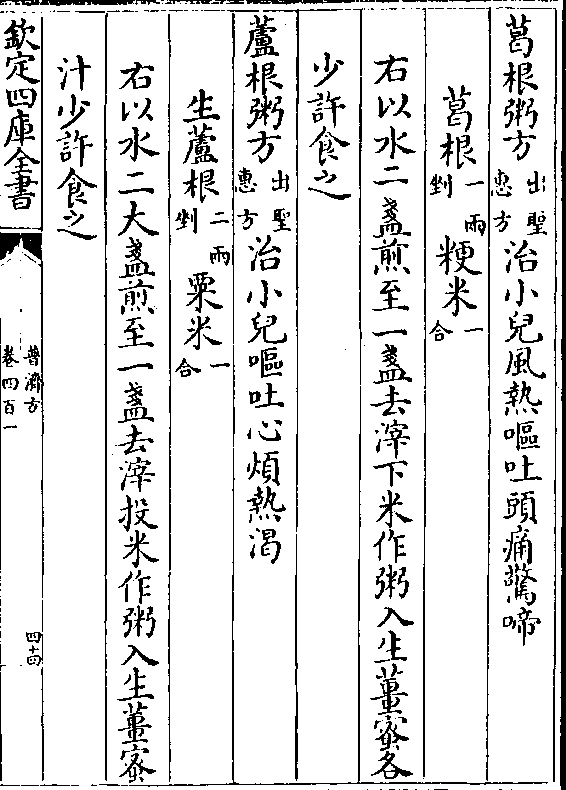 葛根粥方出聖惠方治小兒風熱嘔吐頭痛驚啼
葛根一兩剉粳米一合
右以水二盞煎至一盞去滓下米作粥入生薑蜜各
少許食之
蘆根粥方出聖惠方治小兒嘔吐心煩熱渴
生蘆根二兩剉粟米一合
右以水二大盞煎至一盞去滓投米作粥入生薑蜜
汁少許食之
欽定四庫全書
普濟方
卷四百一
四十四